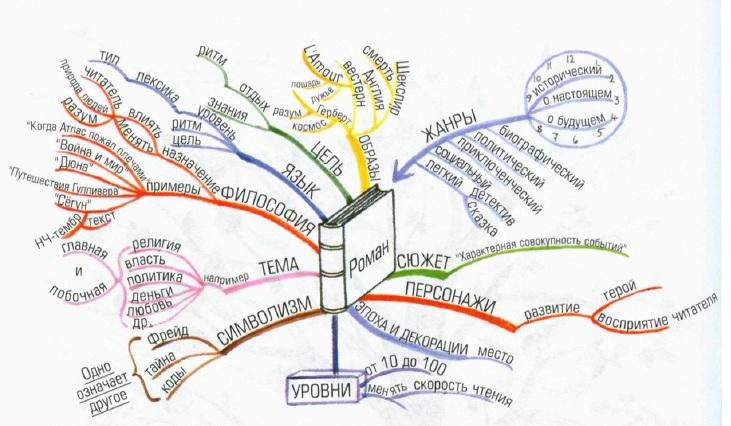 Роман
ОБРАЗЫ
L'Amour
лошадь
ружье
вестерн
смерть
Англия
Шекспир
Герберт
разум
космос
ЖАНРЫ
исторический
о настоящем
о будущем
12
1
2
3
4
5
6
7
8
9
10
11
биографический
политический
приключенческий
социальный
детектив
легкий
сказка
СЮЖЕТ
"Характерная совокупность событий"
ПЕРСОНАЖИ
развитие
герой
восприятие читателя
ЭПОХА И ДЕКОРАЦИИ
место
УРОВНИ
от 10 до 100
менять скорость чтения
СИМВОЛИЗМ
Фрейд
тайна
коды
Одно
означает
другое
ТЕМА
например
религия
власть
политика
деньги
любовь
др.
главная
и
побочная
ФИЛОСОФИЯ
назначение
менять
влиять
читатель
природа людей
разум
примеры
"Когда Атлас пожал плечами"
"Война и мир"
"Дюна"
"Путешествия Гулливера"
"Сёгун"
текст
НЧ-тембр
ЯЗЫК
уровень
лексика
тип
ритм
цель
ЦЕЛЬ
отдых
ритм
знания